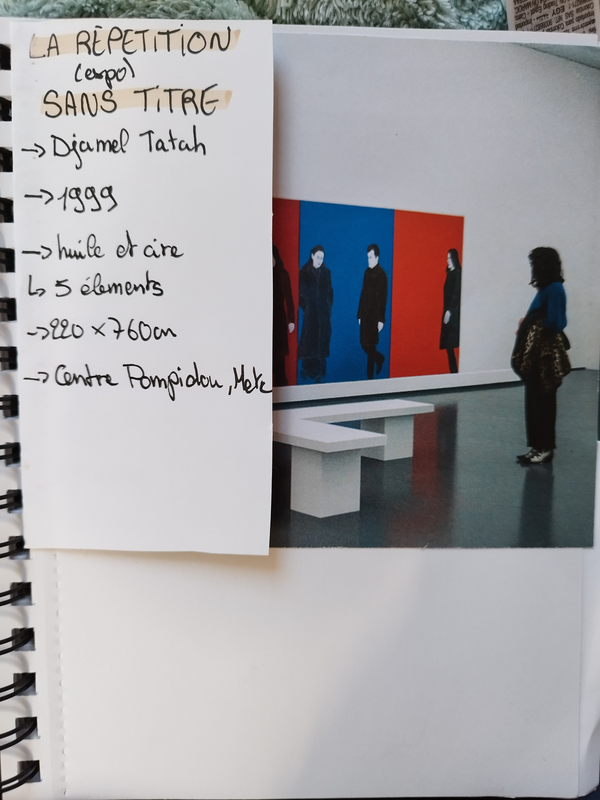 LA RÈPETITION
(expo)
SANS TITRE
→ Djamel Tatah
→ 1999
→ huile et cire
↳ 5 élements
→ 220 x 760cm
→ Centre Pompidou, Metz